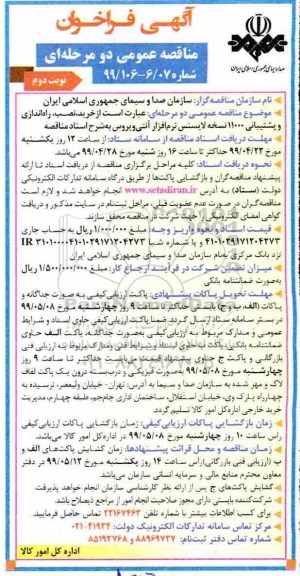 آگهی فراخوان
مناقصه عمومی دو مرحله‌ای
شماره ۹۹/۱۰۶-۶/۰۷
نوبت دوم
صداوسیمای جمهوری اسلامی ایران
نام سازمان مناقصه‌گزار: سازمان صدا و سیمای جمهوری اسلامی ایران
موضوع مناقصه عمومی دو مرحله‌ای: عبارت است از خرید، نصب، راه‌اندازی
و پشتیبانی ۱۱۰۰۰ نسخه لایسنس نرم‌افزار آنتی‌ویروس به‌شرح اسناد مناقصه
مهلت دریافت اسناد مناقصه از سامانه ستاد: از ساعت ۱۲ روز یکشنبه
مورخ ۹۹/۰۴/۲۲ حداکثر تا ساعت ۱۶ روز شنبه مورخ ۹۹/۰۴/۲۸ می‌باشد.
نحوه دریافت اسناد: کلیه مراحل برگزاری مناقصه از دریافت اسناد تا ارائه
پیشنهاد مناقصه‌گران و بازگشایی پاکت‌ها از طریق درگاه سامانه تدارکات الکترونیکی
دولت (ستاد) به آدرس www.setadiran.ir انجام خواهد شد و لازم است
مناقصه‌گران در صورت عدم عضویت قبلی، مراحل ثبت‌نام در سایت مذکور و دریافت
گواهی امضای الکترونیکی را جهت شرکت در مناقصه محقق سازند.
قیمت اسناد و نحوه واریز وجه: مبلغ ۱/۰۰۰/۰۰۰ ریال به حساب جاری
۴۱۰۱۰۲۹۱۷۱۲۰۴۲۷۳ و یا شماره شبا IR
نزد بانک مرکزی به‌نام سازمان صدا و سیمای جمهوری اسلامی ایران
میزان تضمین شرکت در فرآیند ارجاع کار: مبلغ ریال
به‌صورت ضمانتنامه بانکی
مهلت تحویل پاکات پیشنهادی: پاکت ارزیابی کیفی به صورت جداگانه و
پاکات (الف، ب و ج) بایستی حداکثر تا ساعت ۹ روز چهارشنبه مورخ ۹۹/۰۵/۰۸
در بستر سامانه ستاد ارسال گردد. ضمناً پاکت ارزیابی کیفی حاوی اسناد و شرایط
عمومی و مدارک مربوط به ارزیابی کیفی به‌صورت جداگانه، پاکت الف حاوی
ضمانتنامه بانکی، پاکت ب حاوی اسناد و شرایط فنی و مدارک مربوط به ارزیابی فنی
بازرگانی و پاکت ج حاوی پیشنهاد قیمت می‌بایست حداکثر تا ساعت ۹ روز
چهارشنبه مورخ ۹۹/۰۵/۰۸ به‌صورت فیزیکی و دربسته درون یک پاکت لفاف
لاک و مهر شده به سازمان صدا و سیما به آدرس: تهران، خیابان ولیعصر، نرسیده به
چهارراه پارک وی، خیابان استقلال، ساختمان اداری جام‌جم، طبقه چهارم، مدیریت
خرید خارجی اداره کل امور کالا تسلیم گردد.
زمان بازگشایی پاکات ارزیابی کیفی: زمان بازگشایی پاکات ارزیابی کیفی
راس ساعت ۱۰ روز چهارشنبه مورخ ۹۹/۰۵/۰۸ در اداره کل امور کالا می‌باشد.
زمان مناقصه و محل قرائت پیشنهادها: زمان گشایش پاکت‌های الف و
ب (ارزیابی فنی بازرگانی) راس ساعت ۱۴ روز یکشنبه مورخ ۹۹/۰۵/۱۲ در دفتر
معاون محترم منابع مالی و سرمایه انسانی سازمان می‌باشد.
گشایش پاکت‌های ج پس از ارائه نظر کارشناسی سازمان انجام خواهد پذیرفت.
شرکت‌کننده بایستی دارای مجوز صلاحیت انجام امور از مراجع ذیصلاح باشد.
برای کسب اطلاعات بیشتر با شماره تلفن ۲۲۱۶۷۴۶۳ تماس حاصل فرمایید.
مرکز تماس سامانه تدارکات الکترونیک دولت: ۰۲۱-۴۱۹۳۴
شماره تماس دفتر ثبت‌نام: ۸۸۹۶۹۷۳۷ و ۸۵۱۹۳۷۶۸
اداره کل امور کالا